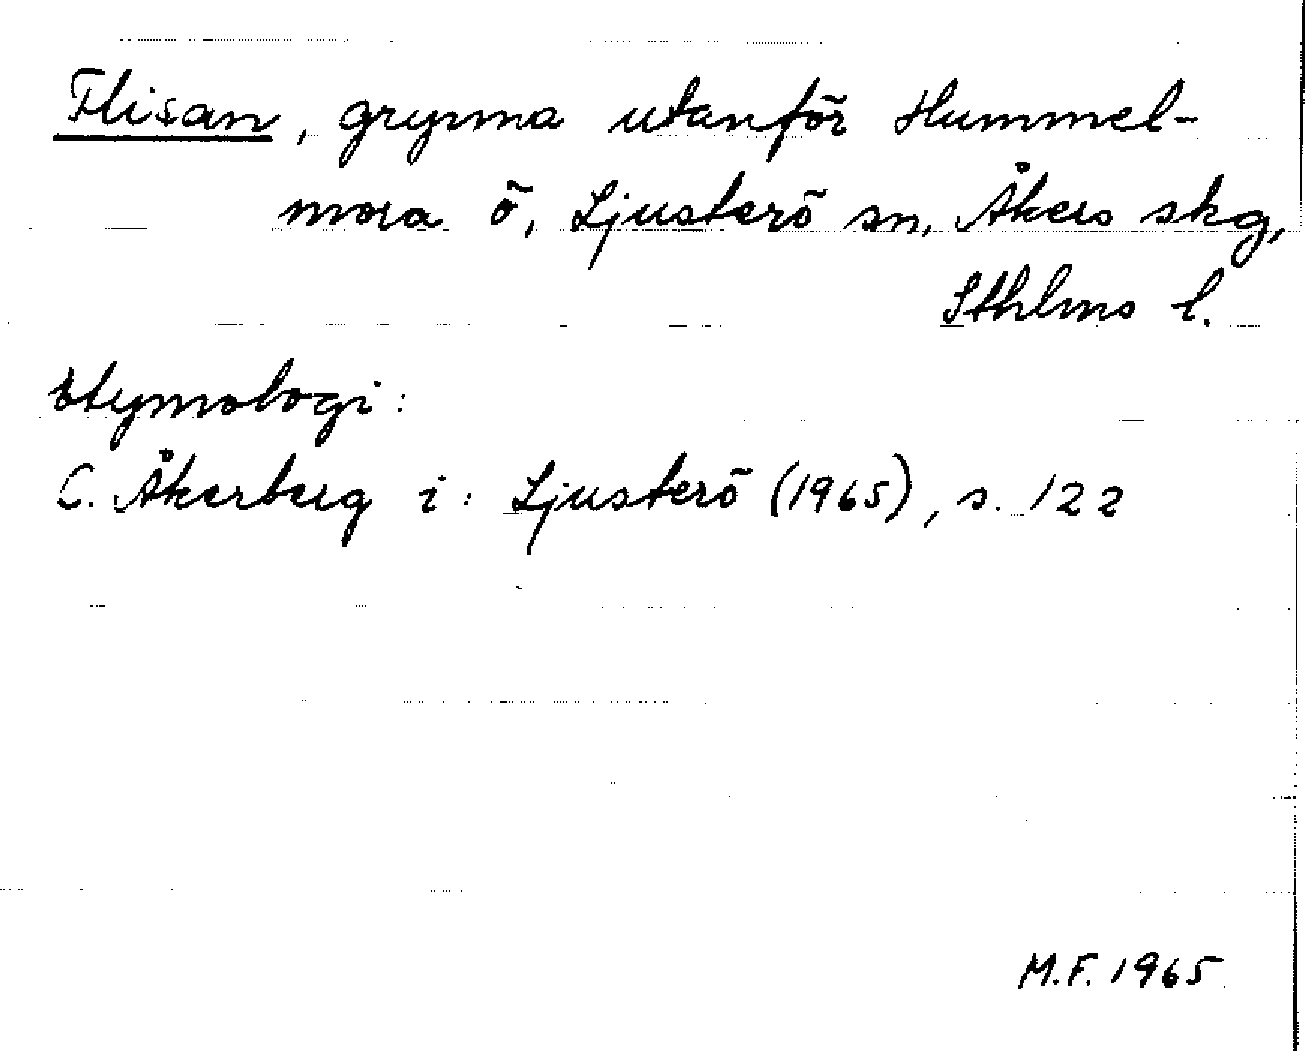 Flisan, grynna utanför Hummel-
mora ö, Ljusterö sn, Åkers skg,
Sthlms l.
Etymologi:
C. Åkerberg i: Ljusterö (1965), s. 122
M.F. 1965